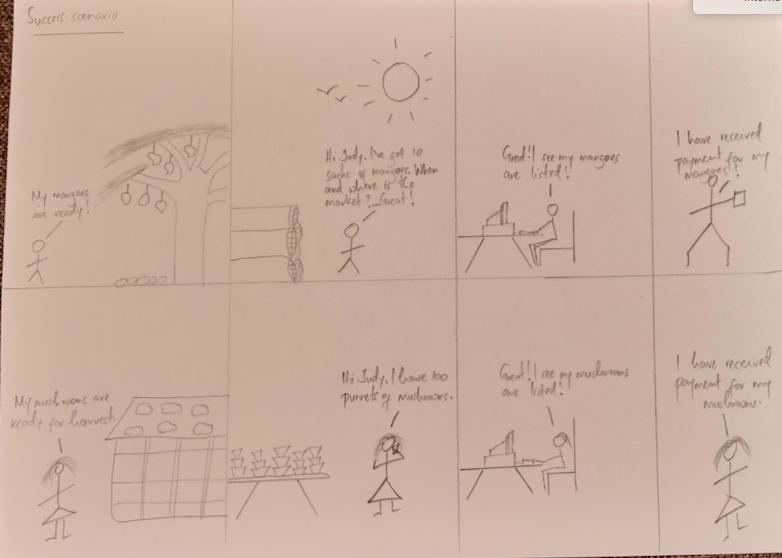 Success scenario
My mangoes
are ready!
Hi Judy. I've got 10
sacks of mangoes. When
and where is the
market?...Great!
Great! I see my mangoes
are listed!
I have received
payment for my
mangoes!
My mushrooms are
ready for harvest.
Hi Judy. I have 100
punnets of mushrooms.
Great! I see my mushrooms
are listed!
I have received
payment for my
mushrooms.